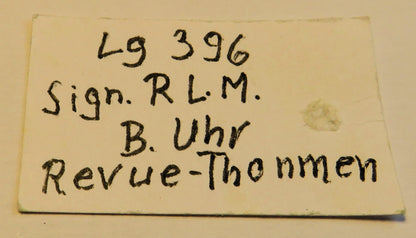 Lg 396
Sign. R L. M.
B. Uhr
Revue-Thonmen